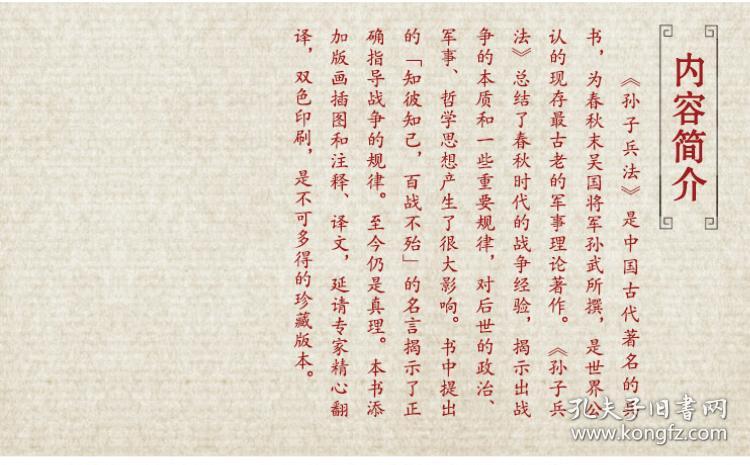 内容简介
《孙子兵法》是中国古代著名的兵
书，为春秋末吴国将军孙武所撰，是世界公
认的现存最古老的军事理论著作。《孙子兵
法》总结了春秋时代的战争经验，揭示出战
争的本质和一些重要规律，对后世的政治、
军事、哲学思想产生了很大影响。书中提出
的「知彼知己，百战不殆」的名言揭示了正
确指导战争的规律。至今仍是真理。本书添
加版画插图和注释、译文，延请专家精心翻
译，双色印刷，是不可多得的珍藏版本。
孔夫子旧书网
www.kongfz.com